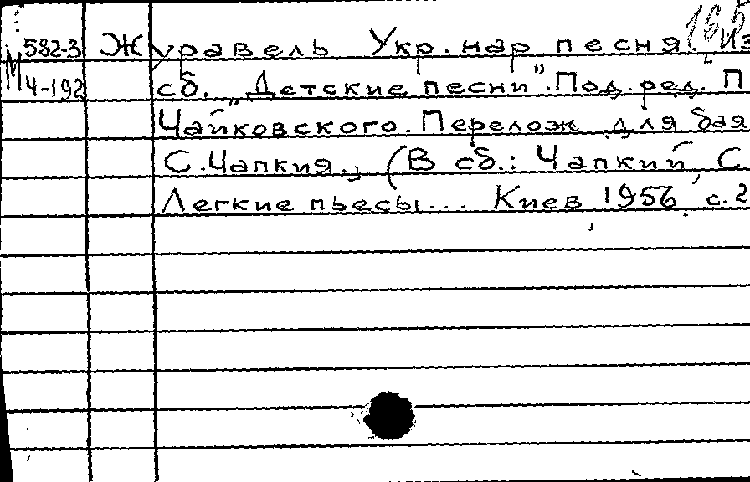 М 582-3 Журавель Укр. нар песня. Из
Ч-192 сб. „Детские песни". Под ред. П
Чайковского. Перелож для бая
С. Чапкия., (В сб.: Чапкий, С.
Легкие пьесы... Киев 1956, с. 2